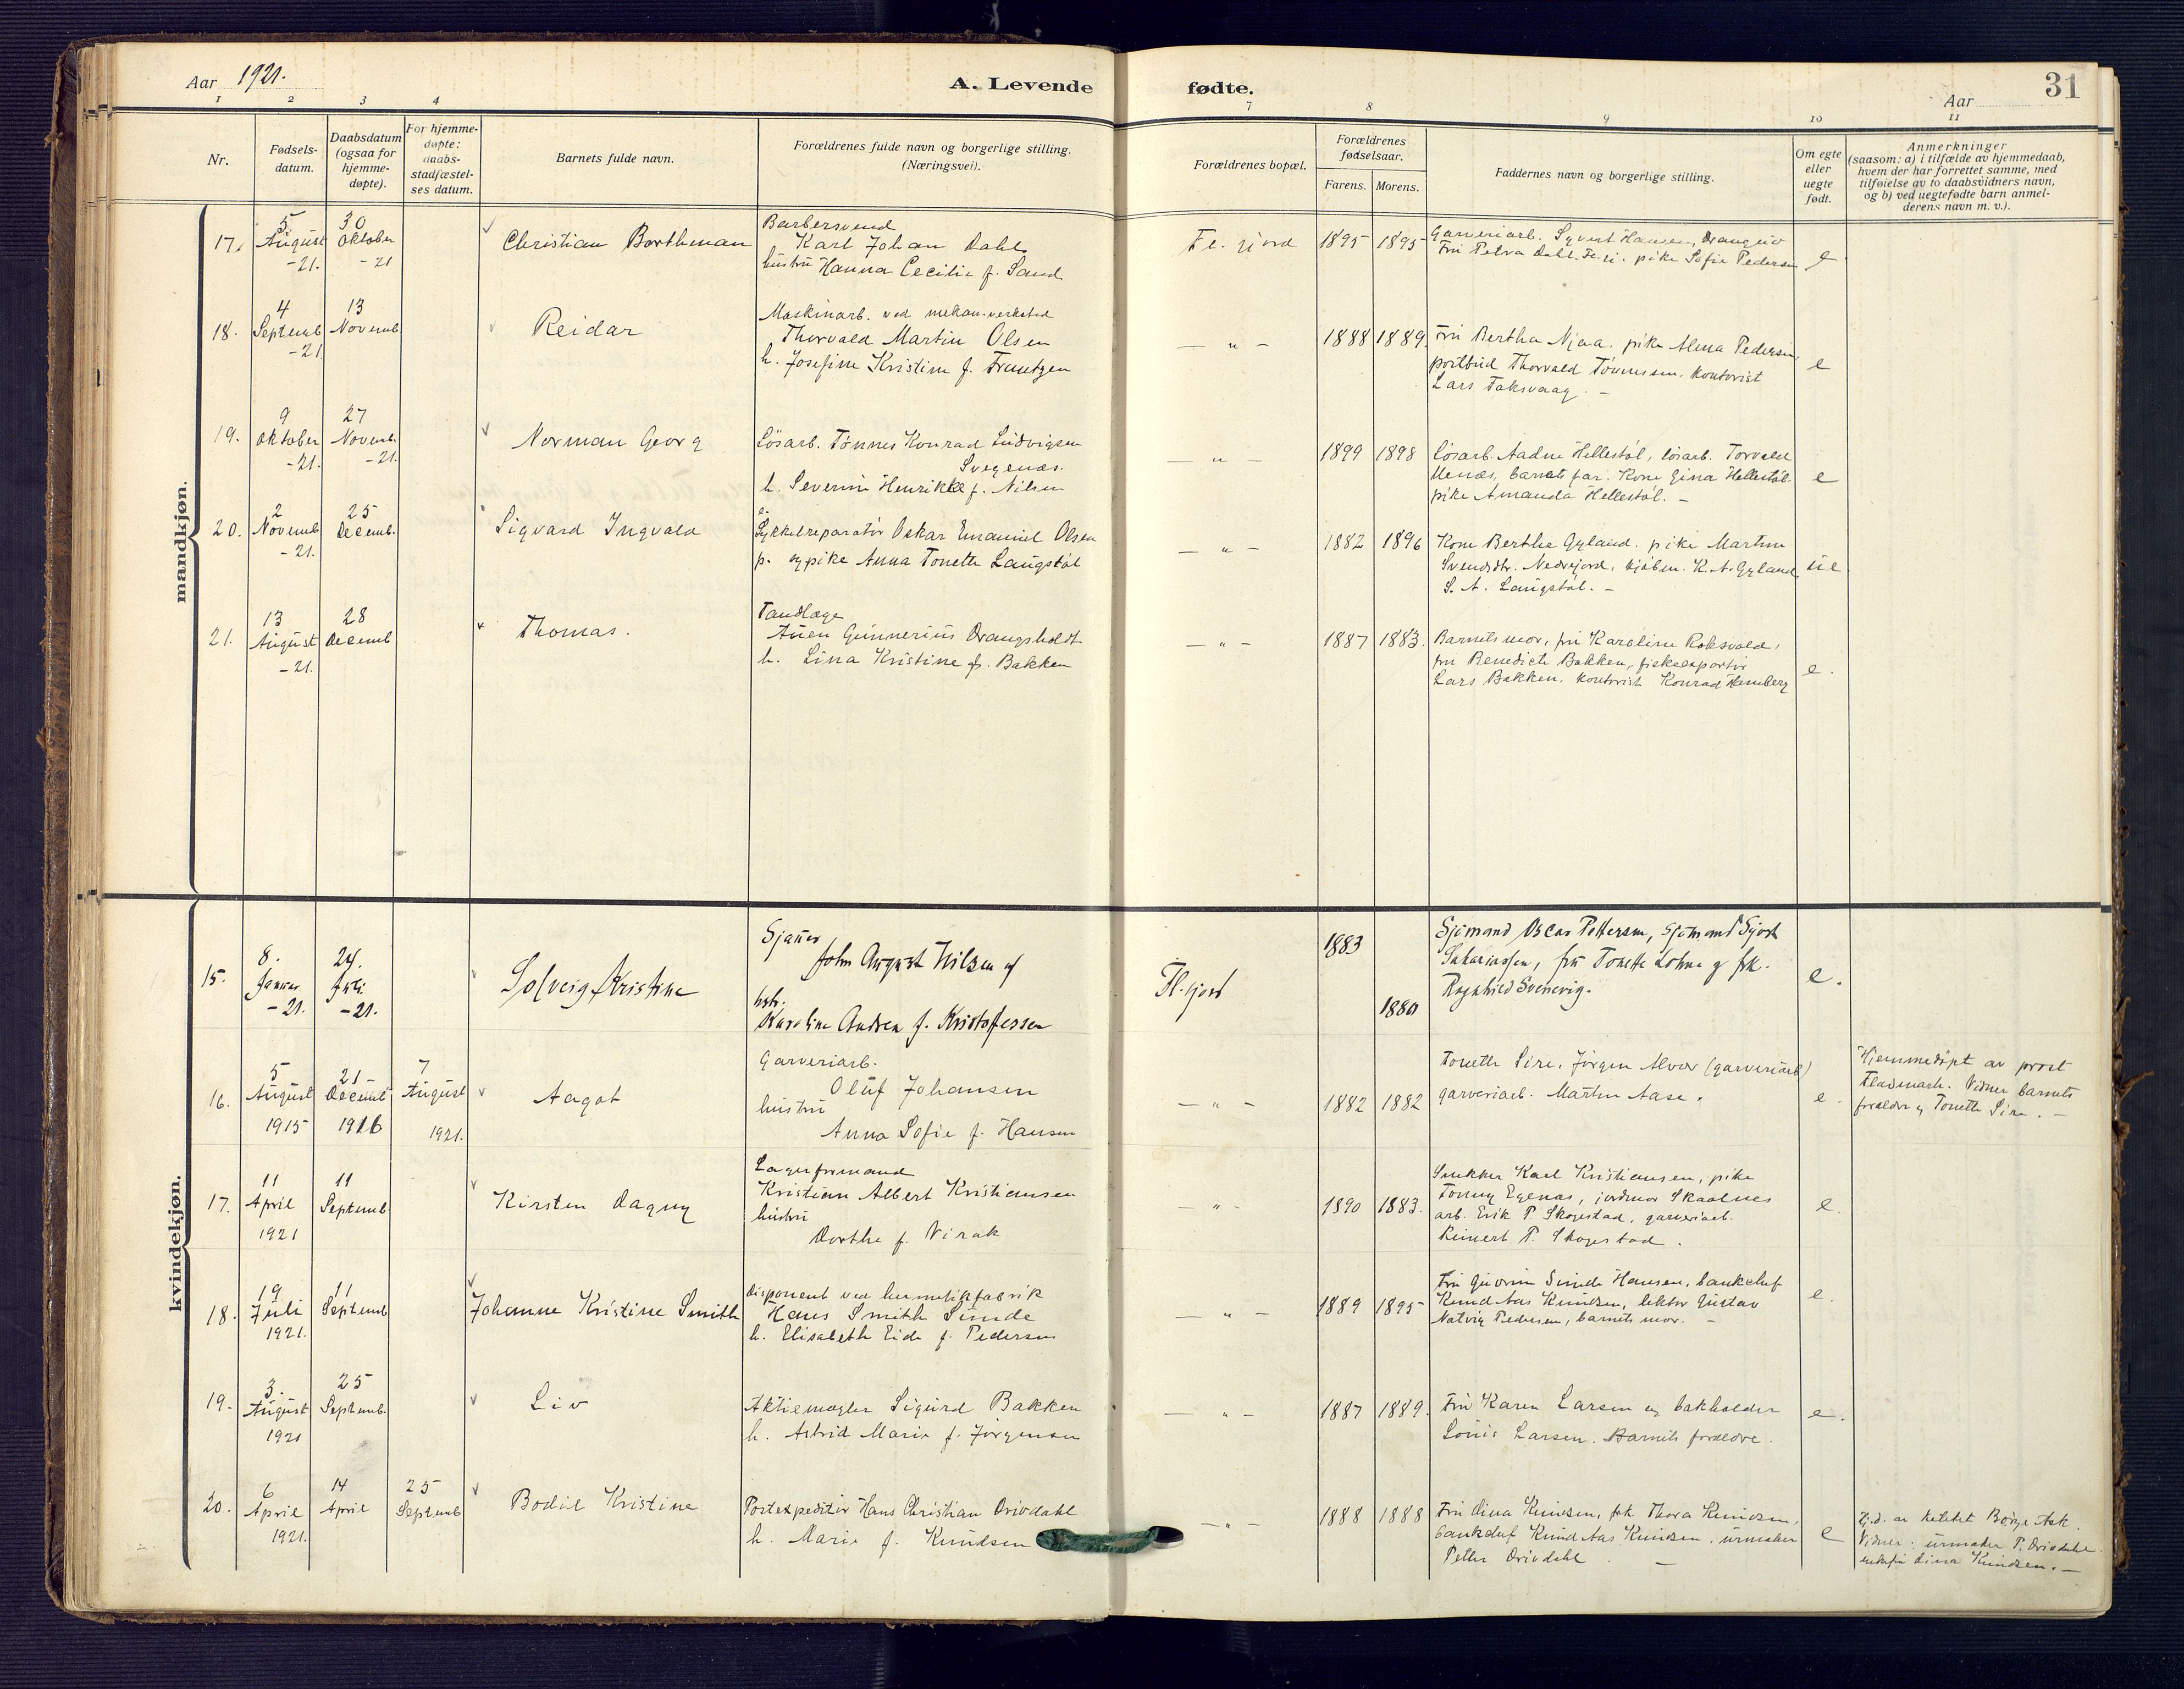 Aar 1921.
A. Levende fødte.
Aar
31
1 2 3 4 7 8 9 10 11
Nr.
Fødsels-
datum.
Daabsdatum
(ogsaa for
hjemme-
døpte).
For hjemme-
døpte:
daabs-
stadfæstel-
ses datum.
Barnets fulde navn.
Forældrenes fulde navn og borgerlige stilling.
(Næringsvei).
Forældrenes bopæl.
Forældrenes
fødselsaar.
Farens. Morens.
Faddernes navn og borgerlige stilling.
Om egte
eller
uegte
født.
Anmerkninger
(saasom: a) i tilfælde av hjemmedaab,
hvem der har forrettet samme, med
tilføielse av to daabsvidners navn,
og b) ved uegtefødte barn anmel-
derens navn m. v.).
mandkjøn.
17.
5
August
-21.
30
Oktober
-21
Christian Borthman
Barbersvend
Karl Johan Dahl
hustru Hanna Cecilie f. Sand
Fl. fjord
1895 1895
Garveriarb. Syvert Hansen, Drangeid
Fru Petra Dahl. Fl. fj. pike Sofie Pedersen
e
18.
4
Septemb
-21
13
Novemb
Reidar
Maskinarb. ved mekan. verksted
Thorvald Martin Olsen
h. Josefine Kristine f. Frantzen
— " —
1888 1889.
Fru Bertha Njaa. pike Alma Pedersen,
postbud Thorvald Tønnessen. kontorist
Lars Faksvaag. —
e
19.
9
Oktober
-21.
27
Novemb.
-21.
Norman Georg
Løsarb. Tønnes Konrad Ludvigsen
Svegenæs.
h. Severine Henrikke f. Nilsen
— " —
1899 1898
Løsarb. Aadne Hellestøl, løsarb. Torvald
Ulenæs, barnets far. Kone Gina Hellestøl.
pike Amanda Hellestøl. —
e
20.
2
Novemb
-21.
25
Decemb.
Sigvard Ingvald
Sykkelreparatør Oskar Emanuel Olsen
p. og pike Anna Tonette Langstøl
— " —
1882 1896
Kone Berthe Gyland. pike Martine
Svendsdr. Nedrejord, kjøbm. K. A. Gyland,
S. A. Langstøl. —
ue
21.
13
August
-21.
28
Decemb
Thomas.
Tandlæge
Auen Gunnerius Drangsholdt
h. Lina Kristine f. Bakken
— " —
1887 1883.
Barnets mor, fru Karoline Roksvold,
fru Benedicte Bakken, fiskeexportør
Lars Bakken. kontorist Konrad Hemberg
e.
kvindekjøn.
15.
8.
Januar
-21.
24.
Juli
-21.
Solveig Kristine
Sjauer
John August Nilsen og
hstr.
Karoline Andrea f. Kristoffersen
Fl. fjord
1883
1880
Sjømand Oscar Pettersen, Sjømand Sjovt
Sakariassen, fru Tonette Lohne og frk.
Ragnhild Svenevig.
e.
16.
5
August
1915
21
Decemb
1916
7
August
1921.
Aagot
Garveriarb.
Oluf Johansen
hustru
Anna Sofie f. Hansen
— " —
1882 1882
Tonette Sire, Jørgen Alver (garveriarb)
garveriarb. Martin Aase.
e.
Hjemmedøpt av prost
Fladmark. Vidner barnets
forældre og Tonette Sire. —
17.
11
April
1921
11
Septemb
Kirsten Dagny
Lagerformand
Kristian Albert Kristiansen
hustru
Dorthe f. Virak
— " —
1890 1883.
Snekker Karl Kristiansen, pike
Tomny Egenæs, jordmor Skaalnes
arb. Erik P. Skogestad, garveriarb.
Reinert P. Skogestad.
e.
18.
19
Juli
1921.
11
Septemb
Johanne Kristine Smith
Disponent ved hermetikfabrik
Hans Smith Sunde
h. Elisabeth Eide f. Pedersen
— " —
1889 1895
Fru Guvrin Sunde Hansen, bankchef
Knud Aas Knudsen, lektor Gustav
Natvig Pedersen, barnets mor. —
e.
19.
3.
August
1921
25
Septemb.
Liv
Aktiemægler Sigurd Bakken
h. Astrid Marie f. Jørgensen
— " —
1887 1889.
Fru Karen Larsen og bokholder
Louis Larsen. Barnets forældre.
e.
20.
6
April
1921.
14
April
25
Septemb
Bodil Kristine
Postexpeditør Hans Christian Drivdahl
h. Marie f. Knudsen
— " —
1888 1888
Fru Dina Knudsen, frk. Thora Knudsen,
bankchef Knud Aas Knudsen, urmaker
Petter Drivdahl. —
e
Hj.d. av kateket Børge Ask.
Vidner: urmaker P. Drivdahl
Dina Knudsen. —